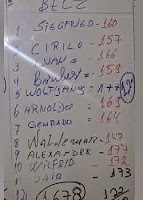 BECZ
1 SIEGFRIED-160
2 CIRILO-157
3 IVAN-166
4
5 WOLFGANG-177
6 ARNOLDO-163
7 GERARDO-164
8 Waldemar-147
9 ALEXANDRE-177
10 WILFRID-172
11 JAIR-173